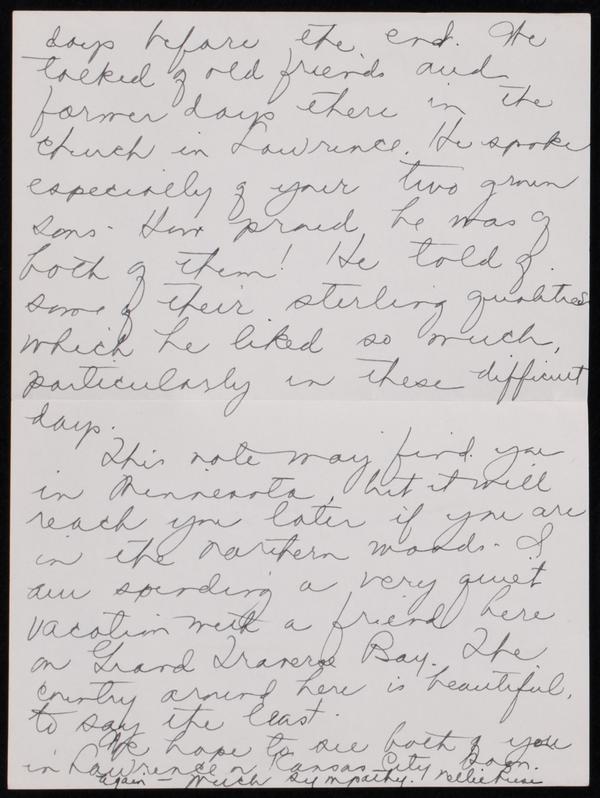 days before the end. We
talked of old friends and
former days there in the
church in Lawrence. He spoke
especially of your two grown
sons - How proud he was of
both of them! He told of
some of their sterling qualities
which he liked so much,
particularly in these difficult
days.
This note may find you
in Minnesota, but it will
reach you later if you are
in the northern woods - I
am spending a very quiet
vacation with a friend here
on Grand Traverse Bay. The
country around here is beautiful,
to say the least.
We hope to see both of you
in Lawrence or Kansas City soon.
again - Much sympathy.